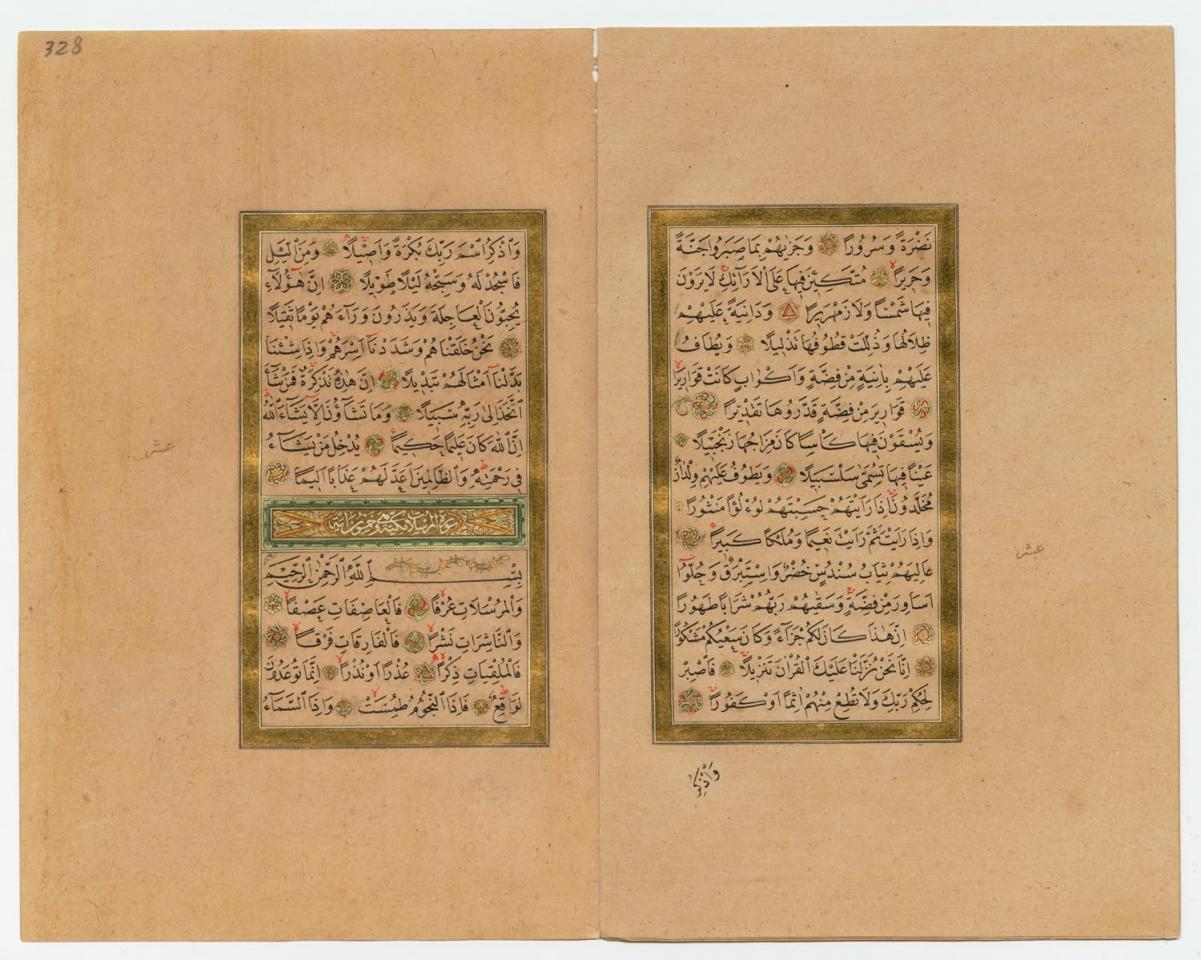 نَضْرَةً وَسُرُورًا وَجَزٰيهُمْ بِمَا صَبَرُوا جَنَّةً
وَحَرِيرًا مُتَّكِئِينَ فِيهَا عَلَى الْاَرَائِكِ لَا يَرَوْنَ
فِيهَا شَمْسًا وَلَا زَمْهَرِيرًا وَدَانِيَةً عَلَيْهِمْ
ظِلَالُهَا وَذُلِّلَتْ قُطُوفُهَا تَذْلِيلًا وَيُطَافُ
عَلَيْهِمْ بِاٰنِيَةٍ مِنْ فِضَّةٍ وَاَكْوَابٍ كَانَتْ قَوَارِيرَا
قَوَارِيرَ مِنْ فِضَّةٍ قَدَّرُوهَا تَقْدِيرًا
وَيُسْقَوْنَ فِيهَا كَاْسًا كَانَ مِزَاجُهَا زَنْجَبِيلًا
عَيْنًا فِيهَا تُسَمّٰى سَلْسَبِيلًا وَيَطُوفُ عَلَيْهِمْ وِلْدَانٌ
مُخَلَّدُونَ اِذَا رَاَيْتَهُمْ حَسِبْتَهُمْ لُؤْلُؤًا مَنْثُورًا
وَاِذَا رَاَيْتَ ثَمَّ رَاَيْتَ نَعِيمًا وَمُلْكًا كَبِيرًا
عَالِيَهُمْ ثِيَابُ سُنْدُسٍ خُضْرٌ وَاِسْتَبْرَقٌ وَحُلُّوا
اَسَاوِرَ مِنْ فِضَّةٍ وَسَقٰيهُمْ رَبُّهُمْ شَرَابًا طَهُورًا
اِنَّ هٰذَا كَانَ لَكُمْ جَزَاءً وَكَانَ سَعْيُكُمْ مَشْكُورًا
اِنَّا نَحْنُ نَزَّلْنَا عَلَيْكَ الْقُرْاٰنَ تَنْزِيلًا فَاصْبِرْ
لِحُكْمِ رَبِّكَ وَلَا تُطِعْ مِنْهُمْ اٰثِمًا اَوْ كَفُورًا
عشر
وَاذْكُرِ
328
وَاذْكُرِ اسْمَ رَبِّكَ بُكْرَةً وَاَصِيلًا وَمِنَ الَّيْلِ
فَاسْجُدْ لَهُ وَسَبِّحْهُ لَيْلًا طَوِيلًا اِنَّ هٰؤُلَاءِ
يُحِبُّونَ الْعَاجِلَةَ وَيَذَرُونَ وَرَاءَهُمْ يَوْمًا ثَقِيلًا
نَحْنُ خَلَقْنَاهُمْ وَشَدَدْنَا اَسْرَهُمْ وَاِذَا شِئْنَا
بَدَّلْنَا اَمْثَالَهُمْ تَبْدِيلًا اِنَّ هٰذِهِ تَذْكِرَةٌ فَمَنْ شَاءَ
اتَّخَذَ اِلٰى رَبِّهِ سَبِيلًا وَمَا تَشَاؤُنَ اِلَّا اَنْ يَشَاءَ اللّٰهُ
اِنَّ اللّٰهَ كَانَ عَلِيمًا حَكِيمًا يُدْخِلُ مَنْ يَشَاءُ
فِي رَحْمَتِهِ وَالظَّالِمِينَ اَعَدَّ لَهُمْ عَذَابًا اَلِيمًا
سورة المرسلات مكية وهي خمسون اية
بِسْمِ اللّٰهِ الرَّحْمٰنِ الرَّحِيمِ
وَالْمُرْسَلَاتِ عُرْفًا فَالْعَاصِفَاتِ عَصْفًا
وَالنَّاشِرَاتِ نَشْرًا فَالْفَارِقَاتِ فَرْقًا
فَالْمُلْقِيَاتِ ذِكْرًا عُذْرًا اَوْ نُذْرًا اِنَّمَا تُوعَدُونَ
لَوَاقِعٌ فَاِذَا النُّجُومُ طُمِسَتْ وَاِذَا السَّمَاءُ
عشر